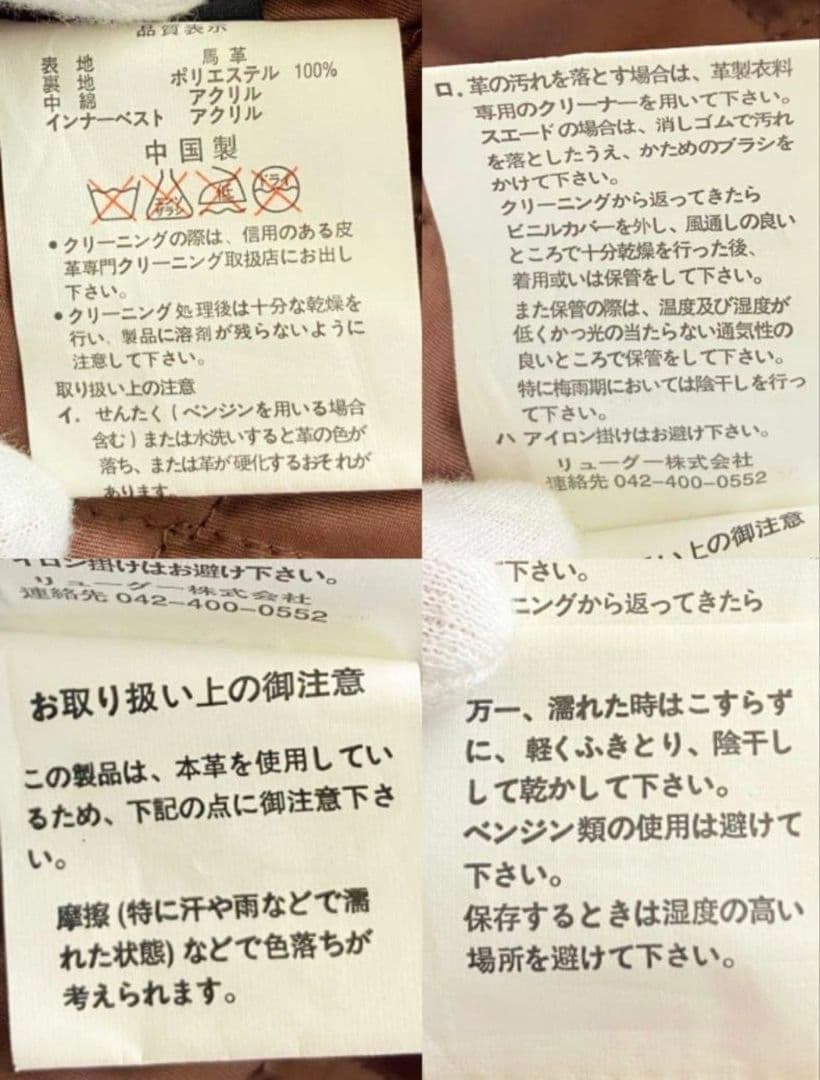 品質表示
表 地 馬革
裏 地 ポリエステル 100%
中 綿 アクリル
インナーベスト アクリル
中国製
エンソサラシ
低
ドライ
●クリーニングの際は、信用のある皮
革専門クリーニング取扱店にお出し
下さい。
●クリーニング処理後は十分な乾燥を
行い、製品に溶剤が残らないように
注意して下さい。
取り扱い上の注意
イ. せんたく(ベンジンを用いる場合
含む)または水洗いすると革の色が
落ち、または革が硬化するおそれが
あります。
ロ. 革の汚れを落とす場合は、革製衣料
専用のクリーナーを用いて下さい。
スエードの場合は、消しゴムで汚れ
を落としたうえ、かためのブラシを
かけて下さい。
クリーニングから返ってきたら
ビニルカバーを外し、風通しの良い
ところで十分乾燥を行った後、
着用或いは保管をして下さい。
また保管の際は、温度及び湿度が
低くかつ光の当たらない通気性の
良いところで保管をして下さい。
特に梅雨期においては陰干しを行っ
て下さい。
ハ アイロン掛けはお避け下さい。
リューグー株式会社
連絡先 042-400-0552
い上の御注意
イロン掛けはお避け下さい。
リューグー株式会社
連絡先 042-400-0552
お取り扱い上の御注意
この製品は、本革を使用してい
るため、下記の点に御注意下さ
い。
摩擦(特に汗や雨などで濡
れた状態)などで色落ちが
考えられます。
下さい。
ニングから返ってきたら
万一、濡れた時はこすらず
に、軽くふきとり、陰干し
して乾かして下さい。
ベンジン類の使用は避けて
下さい。
保存するときは湿度の高い
場所を避けて下さい。